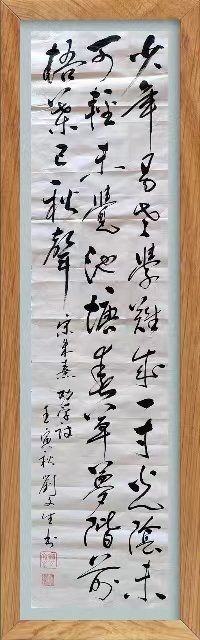 少年易老學難成一寸光陰未
可輕未覺池塘春草夢階前
梧葉已秋聲
宋朱熹勸學詩
壬寅秋劉文書